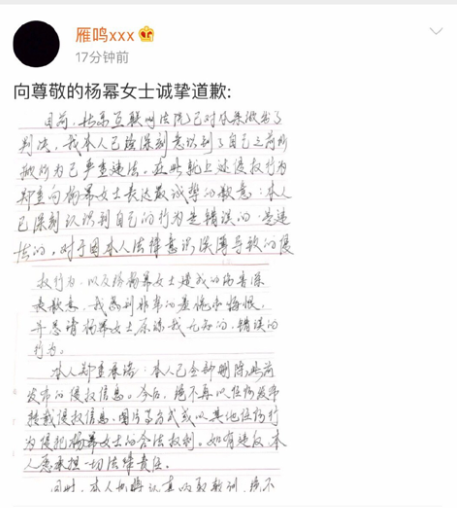 雁鸣xxx
17分钟前
向尊敬的杨幂女士诚挚道歉:
目前,杭州互联网法院已对本案做出了
判决。我本人已深刻意识到了自己之前所
做所为已严重违法。在此就上述侵权行为
郑重向杨幂女士表达最诚挚的歉意:本人
已深刻认识到自己的行为是错误的、是违
法的。对于因本人法律意识淡薄导致的侵
权行为,以及给杨幂女士造成的伤害深
表歉意,我感到非常的羞愧和悔恨,
并恳请杨幂女士原谅我无知的、错误的
行为。
本人郑重承诺:本人已全部删除此前
发布的侵权信息。今后,绝不再以任何发布
转载侵权信息、图片等方式或以其他任何行
为侵犯杨幂女士的合法权利。如有违反,本
人愿承担一切法律责任。
同时,本人也将认真吸取教训,决不